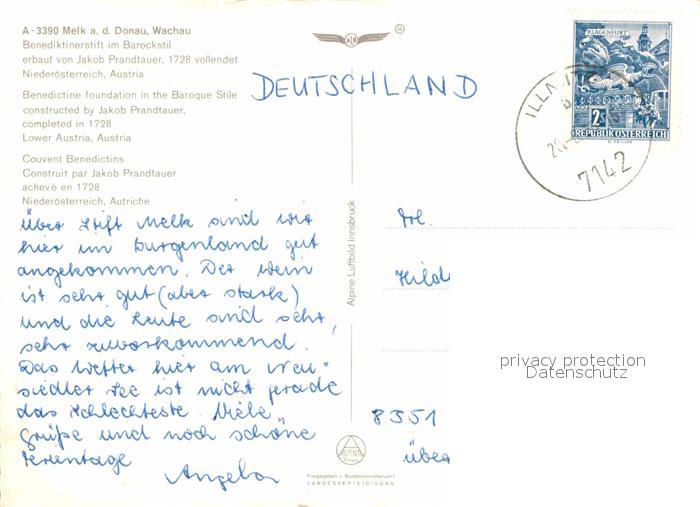 A-3390 Melk a. d. Donau, Wachau
Benediktinerstift im Barockstil
erbaut von Jakob Prandtauer, 1728 vollendet
Niederösterreich, Austria
Benedictine foundation in the Baroque Stile
constructed by Jakob Prandtauer,
completed in 1728
Lower Austria, Austria
Couvent Benedictins
Construit par Jakob Prandtauer
achevè en 1728
Niederösterreich, Autriche
Über Stift Melk sind wir
hier im Burgenland gut
angekommen. Der Wein
ist sehr gut (aber stark)
und die Leute sind sehr,
sehr zuvorkommend.
Das Wetter hier am Neu-
siedler See ist nicht gerade
das Schlechteste. Viele
Grüße und noch schöne
Ferientage
Angela
Alpine Luftbild Innsbruck
ALPINE
Freigegeben v. Bundesministerium f.
LANDESVERTEIDIGUNG
®
DEUTSCHLAND
KLAGENFURT
2S
REPUBLIK ÖSTERREICH
7142
Hild
8351
über
privacy protection
Datenschutz